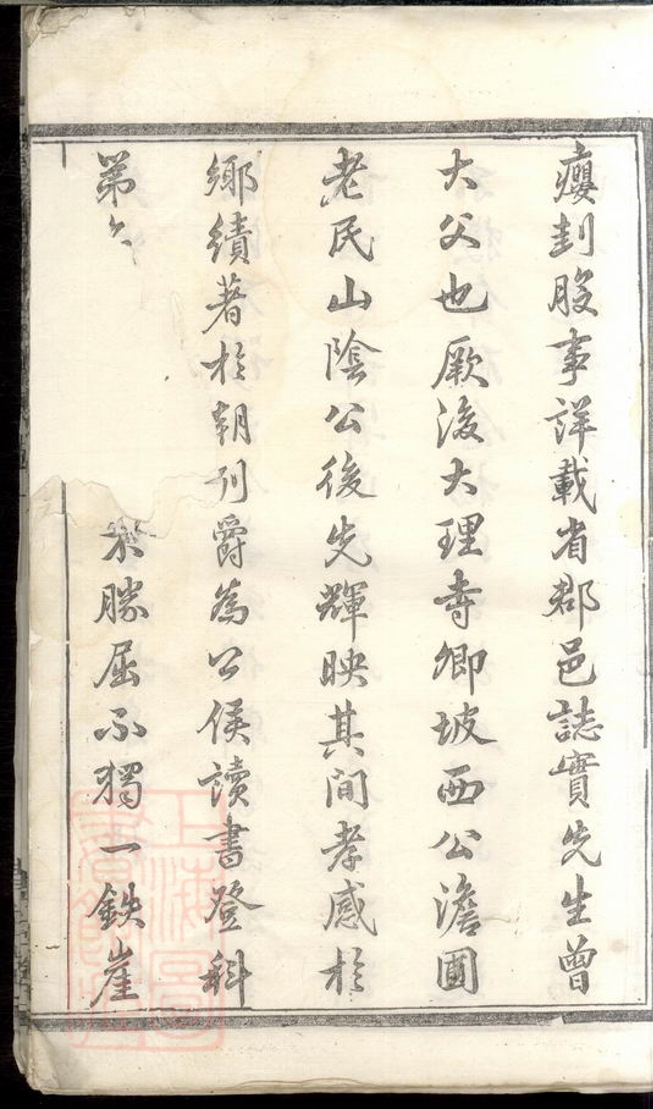 癭刲股事詳載省郡邑誌實先生曾
大父也厥後大理寺卿坡西公澹園
老民山陰公後先輝映其間孝感於
鄉績著於朝列爵為公侯讀書登科
第 不勝屈不獨一鉄崖
上海圖書館藏